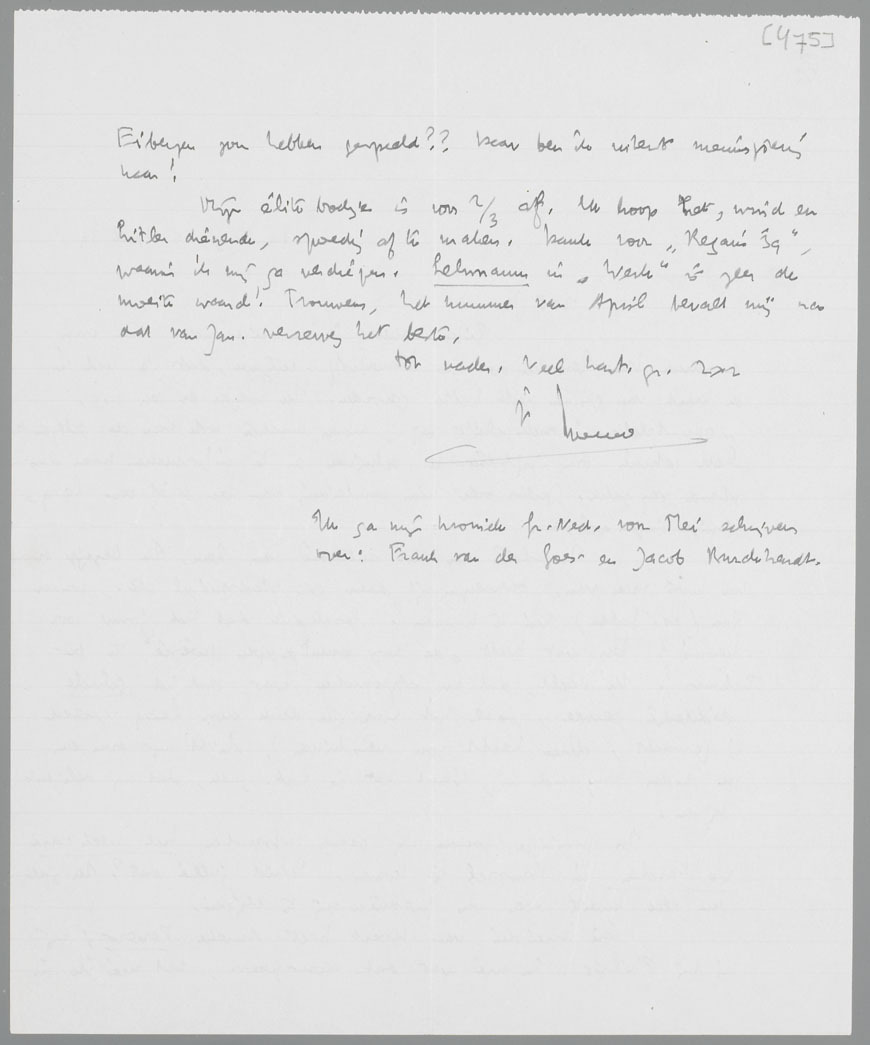 [475]
Eibergen zou hebben gespeeld?? Daar ben ik uiterst nieuwsgierig
naar!
Mijn élite-boekje is voor 2/3 af. Ik hoop het, wind en
Hitler dienende, spoedig af te maken. Dank voor „Regards '39",
waarin ik mij ga verdiepen. Lehmann in „Werk" is zeer de
moeite waard! Trouwens, het nummer van April bevalt mij na
dat van Jan. verreweg het beste.
Tot nader. Veel hart. gr.
je Menno
Ik ga mijn kroniek Gr. Ned. voor Mei schrijven
over: Frank van der Goes en Jacob Burckhardt.